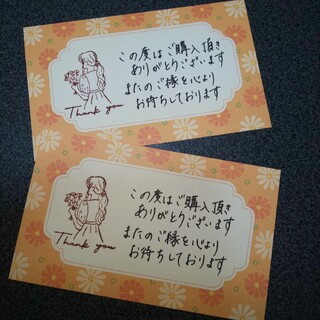 この度はご購入頂き
ありがとうございます
またのご縁を心より
お待ちしております
Thank you
この度はご購入頂き
ありがとうございます
またのご縁を心より
お待ちしております
Thank you